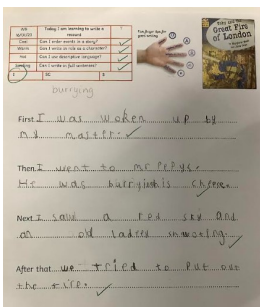 Today I am learning to write a recount
Can I order events in a story?
Can I write in role as a character?
Can I use descriptive language?
Can I write in full sentences?
Five finger hand for good writing
Great Fire of London
burrying
First I was woken up by
my master.
Then I went to mr Pepys.
He was burryinhis cheese.
Next I saw a red sky and
an old ladrey shmoting.
After that we tried to put out
the fire.